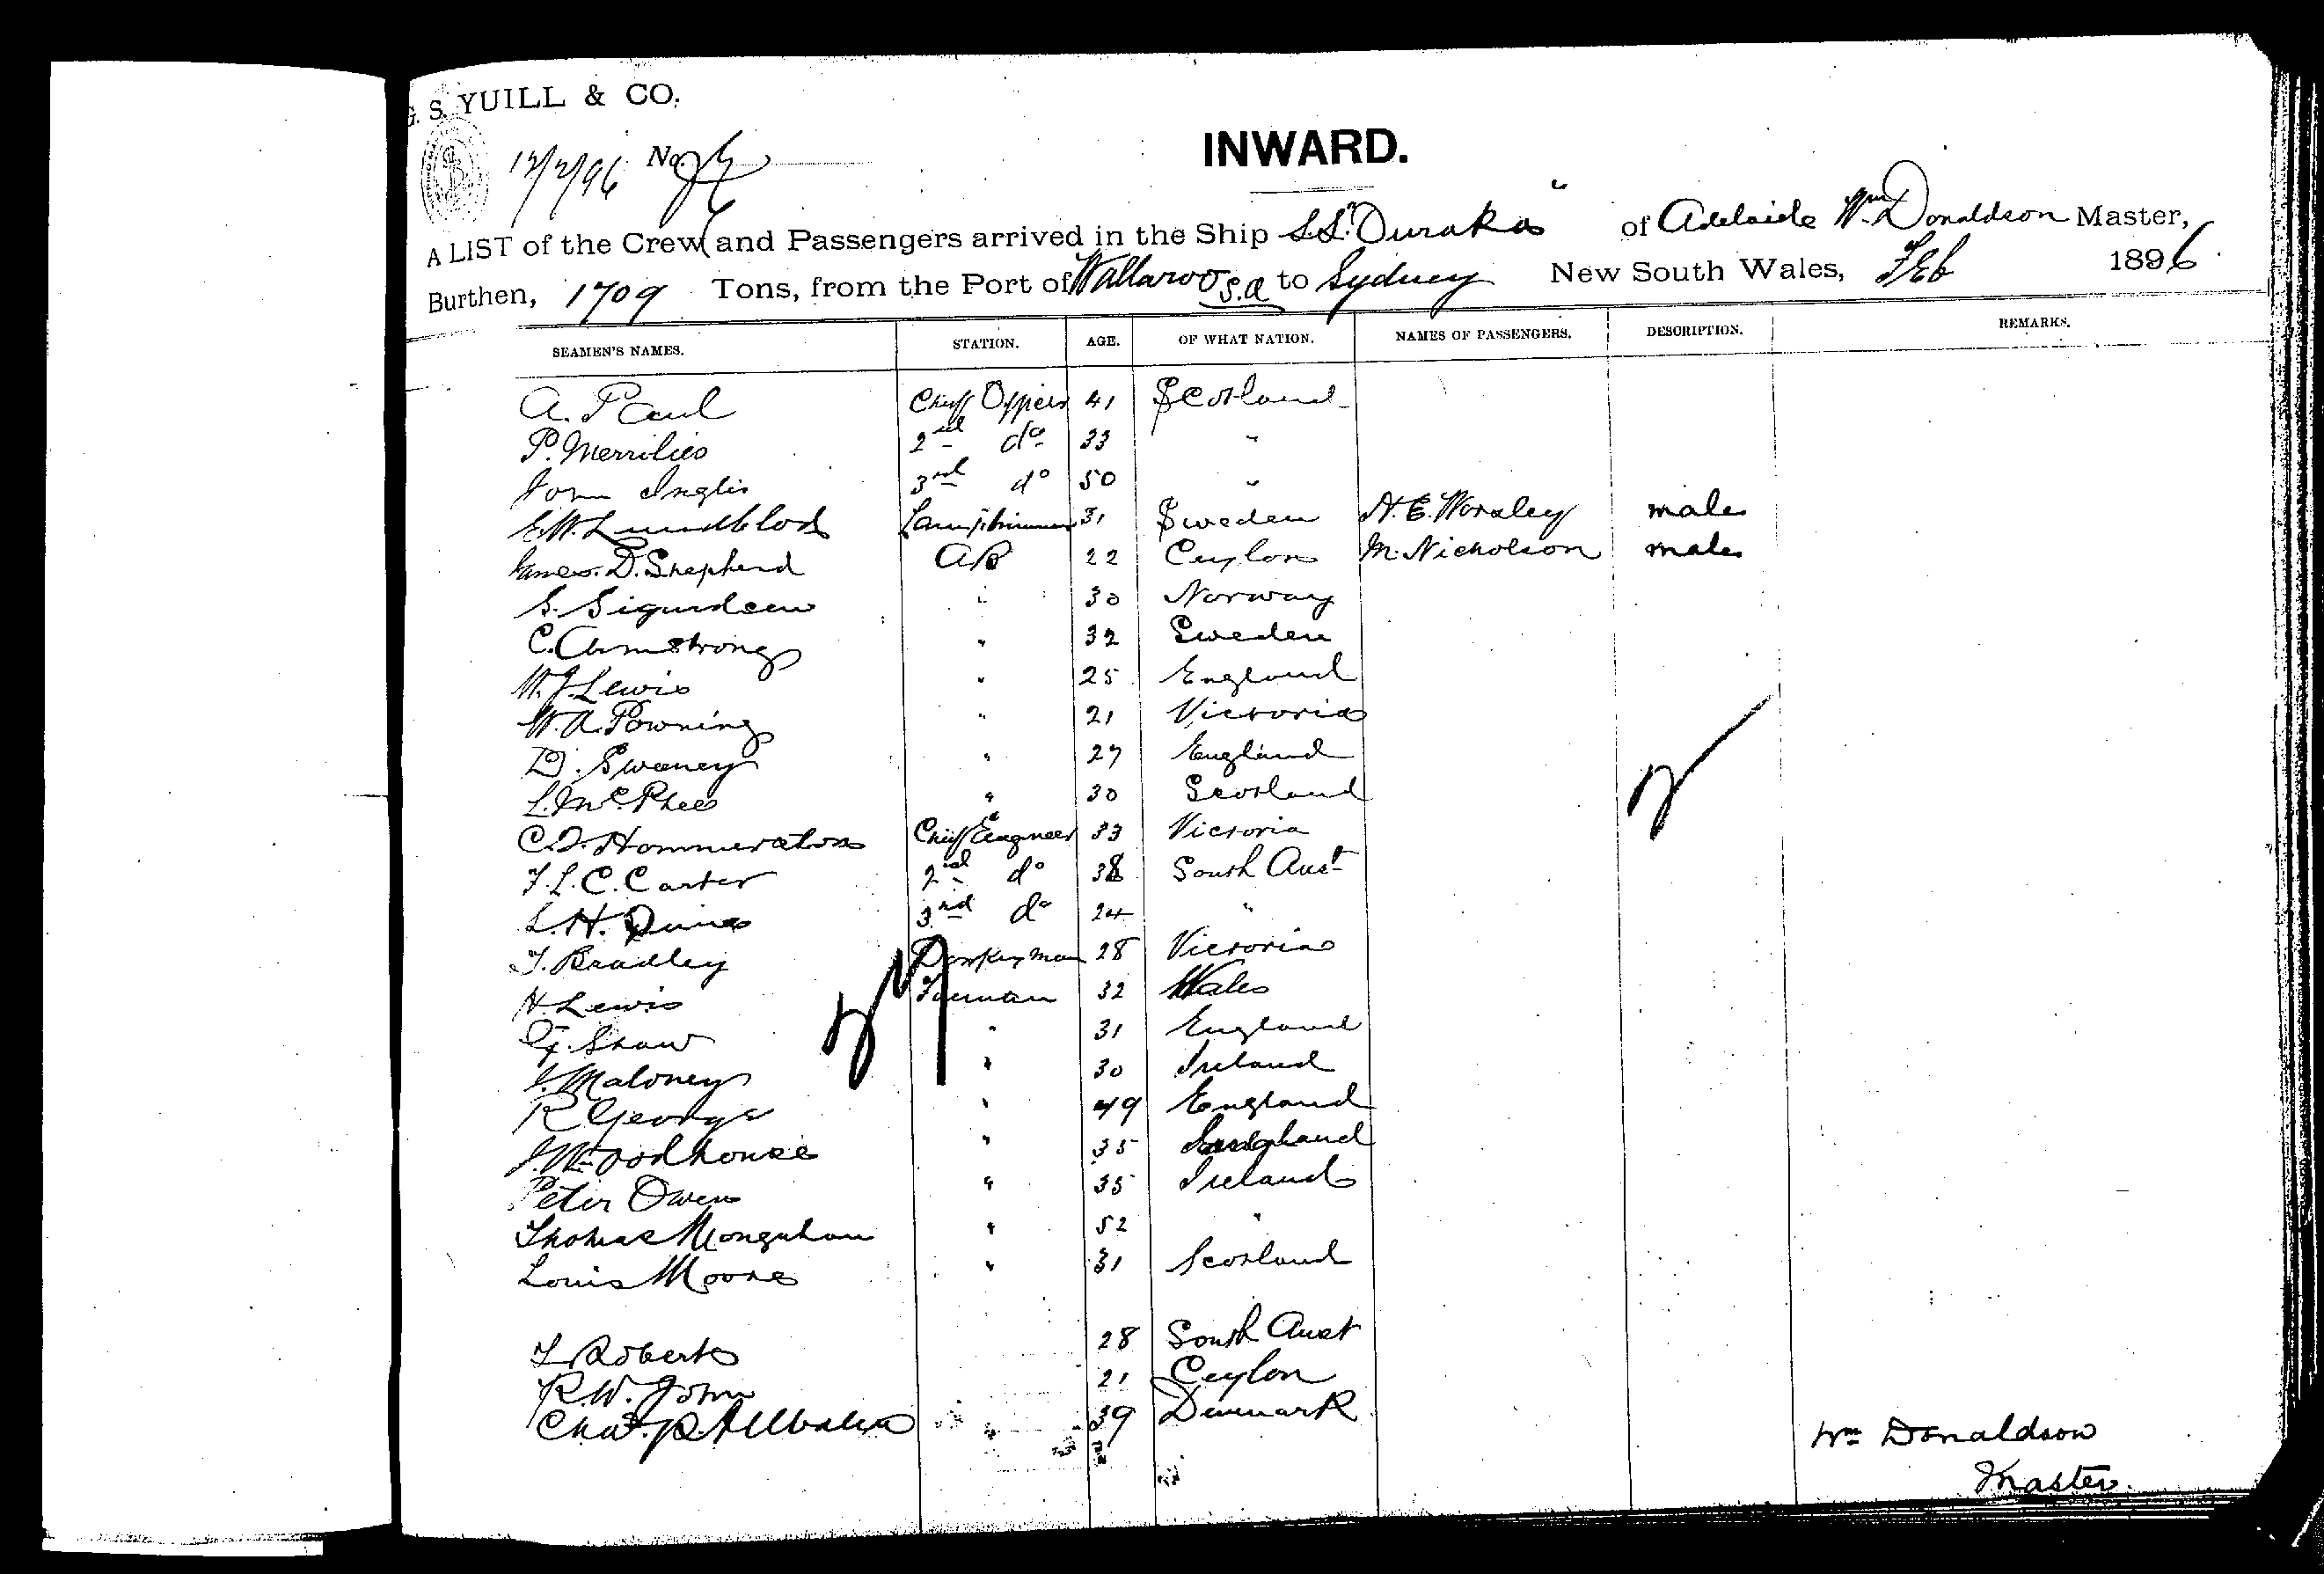 G. S. YUILL & CO.
12/2/96 No.
INWARD.
A LIST of the Crew and Passengers arrived in the Ship S.S. "Ouraka" of Adelaide Wm Donaldson Master,
Burthen, 1709 Tons, from the Port of Wallaroo S.A to Sydney New South Wales, Feb 1896.
SEAMEN'S NAMES. STATION. AGE. OF WHAT NATION. NAMES OF PASSENGERS. DESCRIPTION. REMARKS.
A. Paul Chief Officer 41 Scotland
P. Merrilies 2nd do 33 "
John Inglis 3rd do 50 "
E.W. Lundblod Lamptrimmer 31 Sweden H.E. Worsley male
James. D. Shepherd AB 22 Ceylon M. Nicholson male
S. Sigurdsen " 30 Norway
C. Armstrong " 32 Sweden
W.J. Lewis " 25 England
W.A. Powning " 21 Victoria
D. Sweeney " 27 England
L. McPhee " 30 Scotland
Chief Engineer 33 Victoria
F.L.C. Carter 2nd do 38 South Aust
L.H. 3rd do 24 "
T. Bradley Donkeyman 28 Victoria
H. Lewis Fireman 32 Wales
G. Shaw " 31 England
J. Maloney " 30 Ireland
R George " 49 England
J. Woodhouse " 35 England
Peter Owen " 35 Ireland
Thomas Monguhan " 52 "
Louis Moore " 31 Scotland
T Roberts 28 South Aust
R.W. John 21 Ceylon
Chas. P. 39 Denmark
Wm Donaldson
Master.